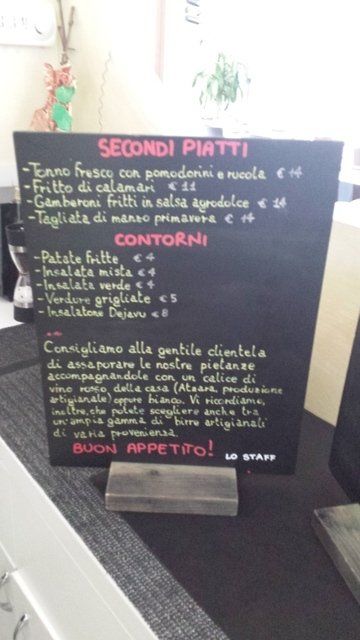 SECONDI PIATTI
-Tonno fresco con pomodorini e rucola € 14
-Fritto di calamari € 11
-Gamberoni fritti in salsa agrodolce € 14
-Tagliata di manzo primavera € 14
CONTORNI
-Patate fritte € 4
-Insalata mista € 4
-Insalata verde € 4
-Verdure grigliate € 5
-Insalatone Dejavu € 8
Consigliamo alla gentile clientela
di assaporare le nostre pietanze
accompagnandole con un calice di
vino rosso della casa (Ataara, produzione
artigianale) oppure bianco. Vi ricordiamo,
inoltre, che potete scegliere anche tra
un'ampia gamma di "birre artigianali"
di varia provenienza.
BUON APPETITO!
LO STAFF